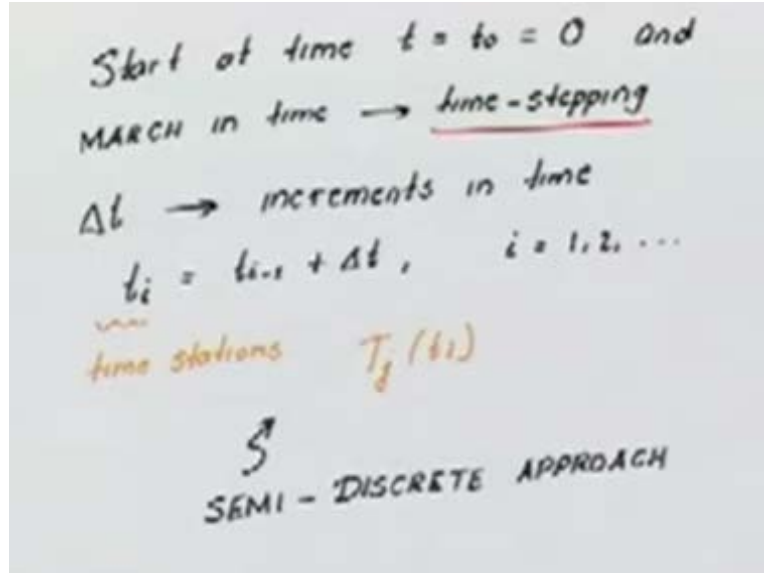 Start at time t = t₀ = 0 and
MARCH in time → time-stepping
Δt → increments in time
tᵢ = tᵢ₋₁ + Δt, i = 1, 2, ...
time stations Tⱼ(tᵢ)
SEMI - DISCRETE APPROACH